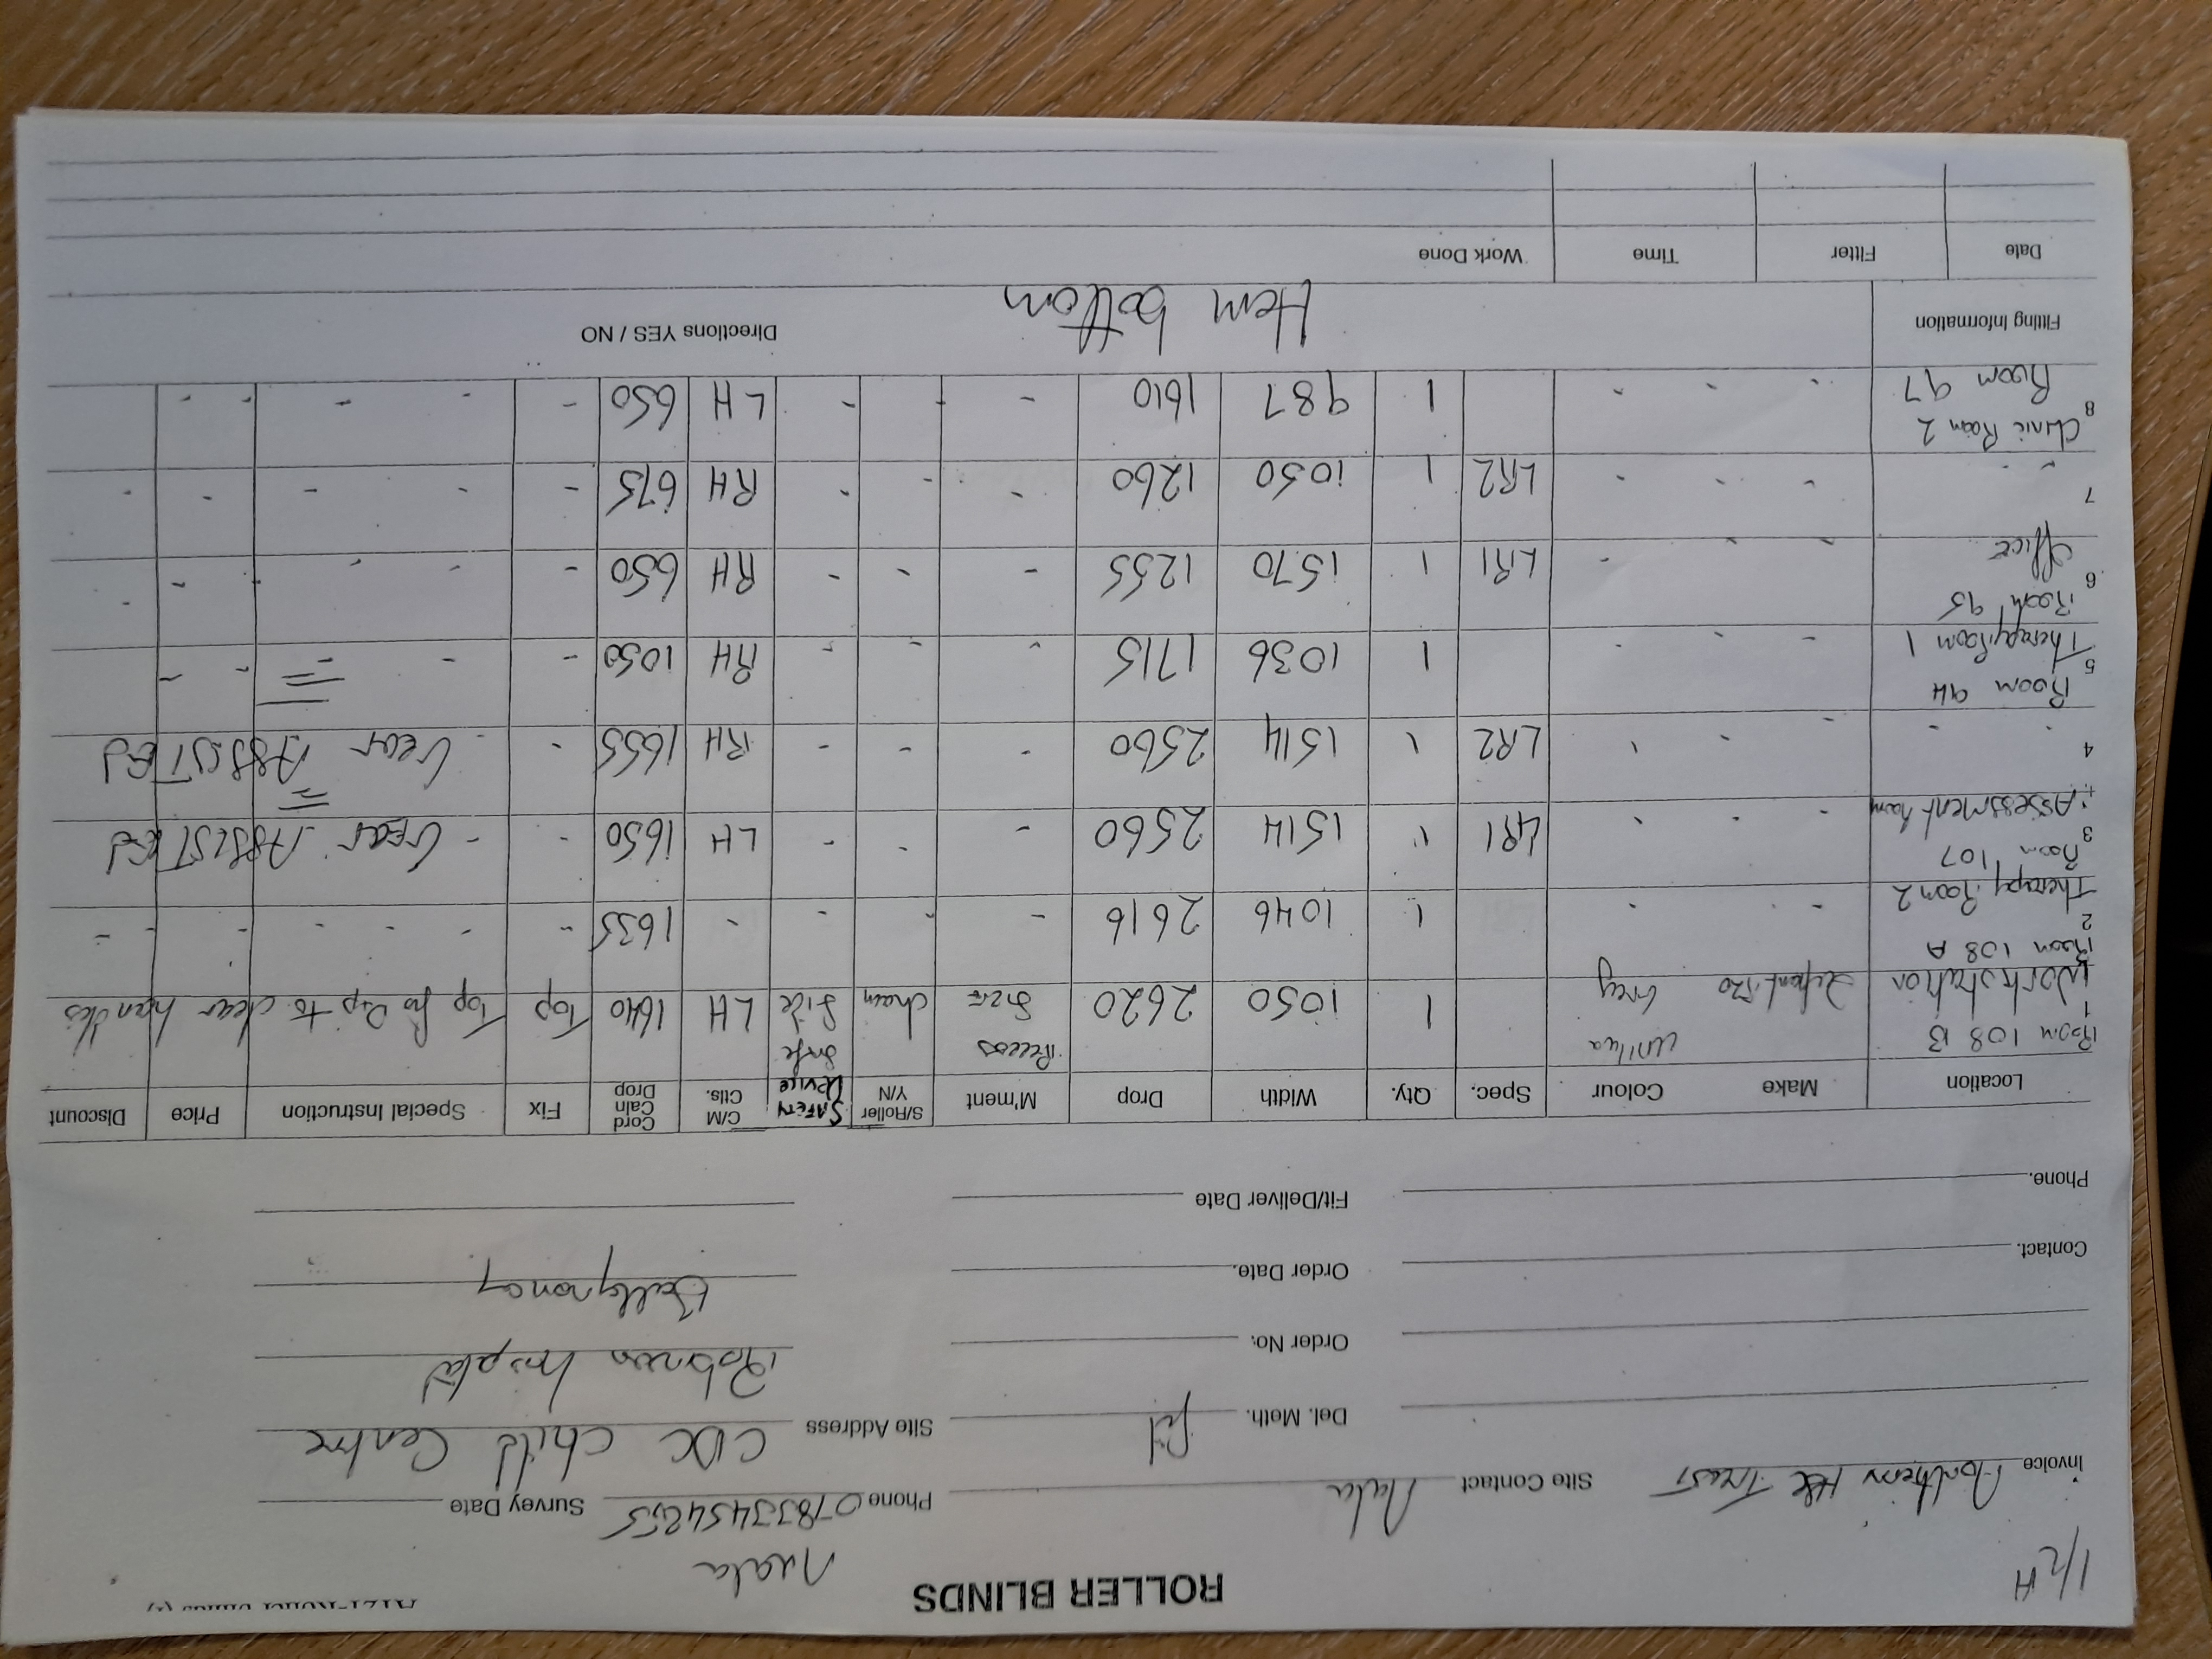 1/2H
ROLLER BLINDS
Nuala
Invoice Northern H&C Trust Site Contact Nuala Phone 07833454255 Survey Date
Del. Meth. fit Site Address CDC Child Centre
Order No. Robinson hospital
Order Date. Ballymoney
Contact.
Fit/Deliver Date
Phone.
Location Make Colour Spec. Qty. Width Drop M'ment S/Roller Y/N SAFETY DEVICE C/M Ctls. Cord Cain Drop Fix Special Instruction Price Discount
1 Room 108 B Workstation Unilux Grey 1 1050 2620 Recess Size chain Side LH 1640 Top Top fix Dip to clear handles
2 Room 108 A Therapy Room 2 - - - 1 1046 2616 - - - - 1635 - - - - - -
3 Room 107 Assessment Room - - - LR1 1 1514 2560 - - - LH 1650 - - Gear ASSISTED
4 - - - - - LR2 1 1514 2560 - - - RH 1655 - - Gear ASSISTED
5 Room 94 Therapy Room 1 - - - 1 1036 1715 - - - RH 1050 - - - - -
6 Room 95 office - - - LR1 1 1570 1255 - - - RH 650 - - - - -
7 " - - - - LR2 1 1050 1260 - - - RH 675 - - - - -
8 Clinic Room 2 Room 97 - - - 1 987 1610 - - - LH 650 - - - - -
Fitting Information Hem bottom Directions YES / NO
Date Fitter Time Work Done